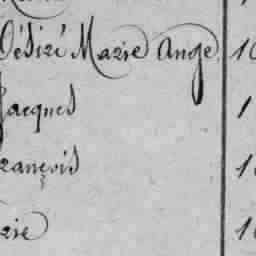 Désiré Marie Ange
Jacques
rançois
rie